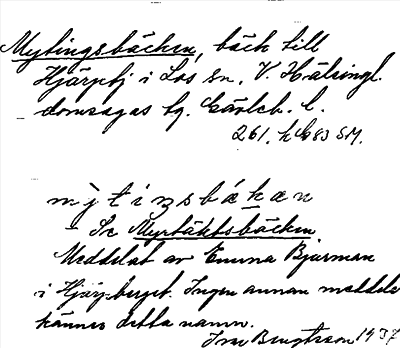 Mytingsbäcken, bäck till
Hjärpbj i Los sn, V. Hälsingl.
domsagas tg. Gävleb. l.
261. h 683 SM.
m ỳ t i ŋ s b á k æ n
- Se Myrtäktsbäcken
Meddelat av Emma Bjurman
i Hjärpberget. Ingen annan meddel.
känner detta namn.
Ivar Bengtsson 1937